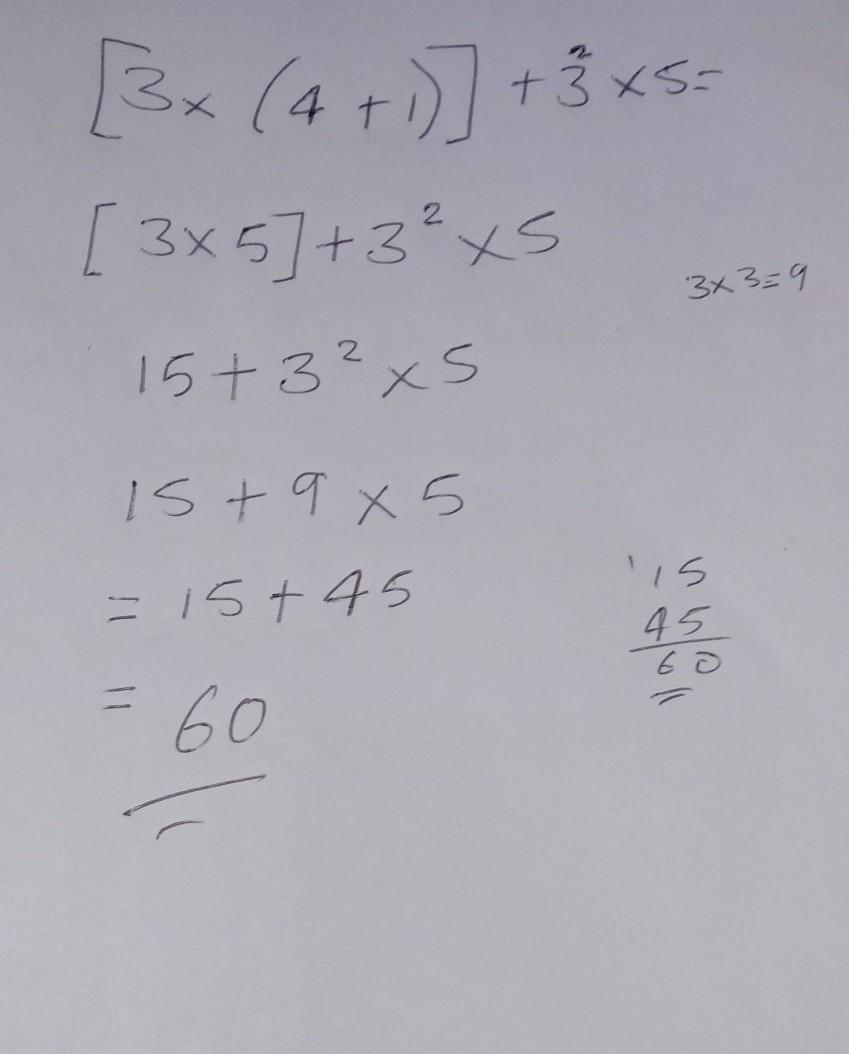 [3x (4 + 1)] + 3² x 5 =
[ 3 x 5] + 3² x 5
3 x 3 = 9
15 + 3² x 5
15 + 9 x 5
= 15 + 45
= 60
'15
45
60